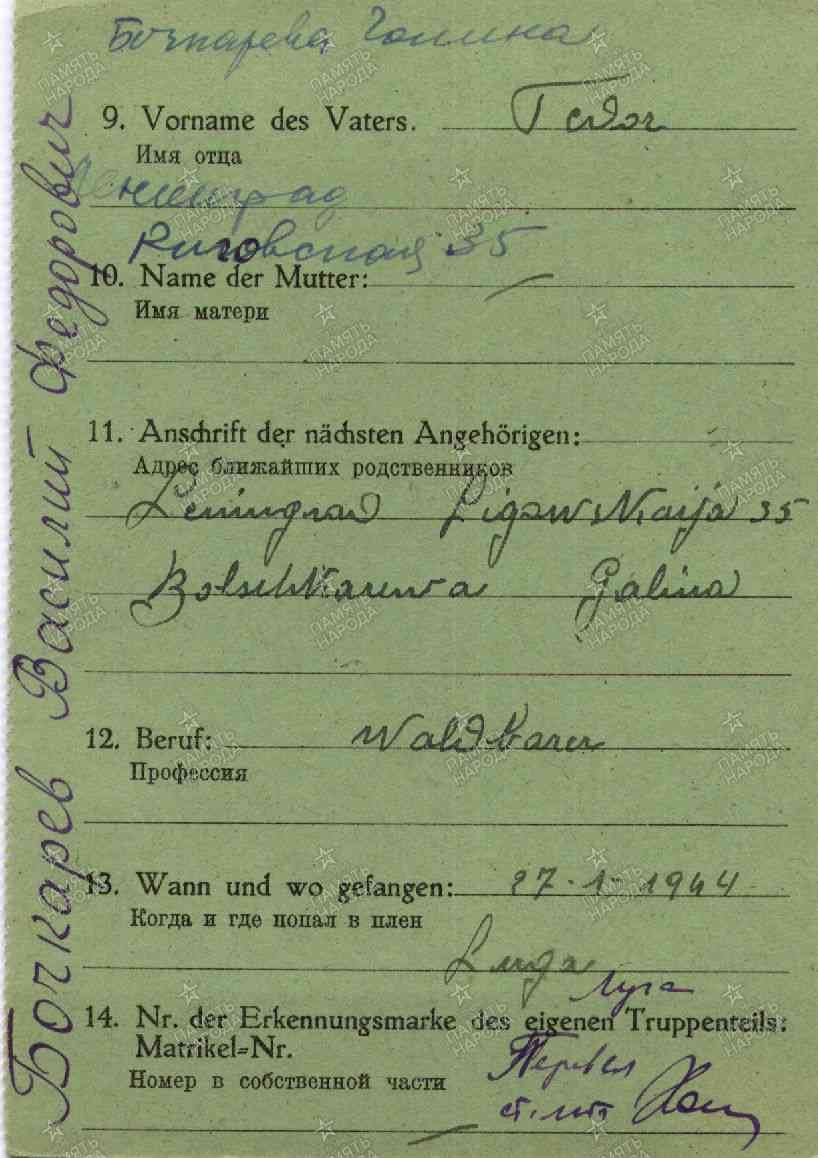 Бочкарева Галина
9. Vorname des Vaters. Fedor
Имя отца
Ленинград
Лиговская 35
10. Name der Mutter: —
Имя матери
11. Anschrift der nächsten Angehörigen:
Адрес ближайших родственников
Leningrad Ligowskaija 35
Botschkarewa Galina
12. Beruf:
Профессия
13. Wann und wo gefangen: 27.1.1944
Когда и где попал в плен
Luga
Луга
14. Nr. der Erkennungsmarke des eigenen Truppenteils:
Matrikel=Nr.
Номер в собственной части
Перевел
ст. л-т
—
Бочкарев Василий Федорович
ПАМЯТЬ НАРОДА